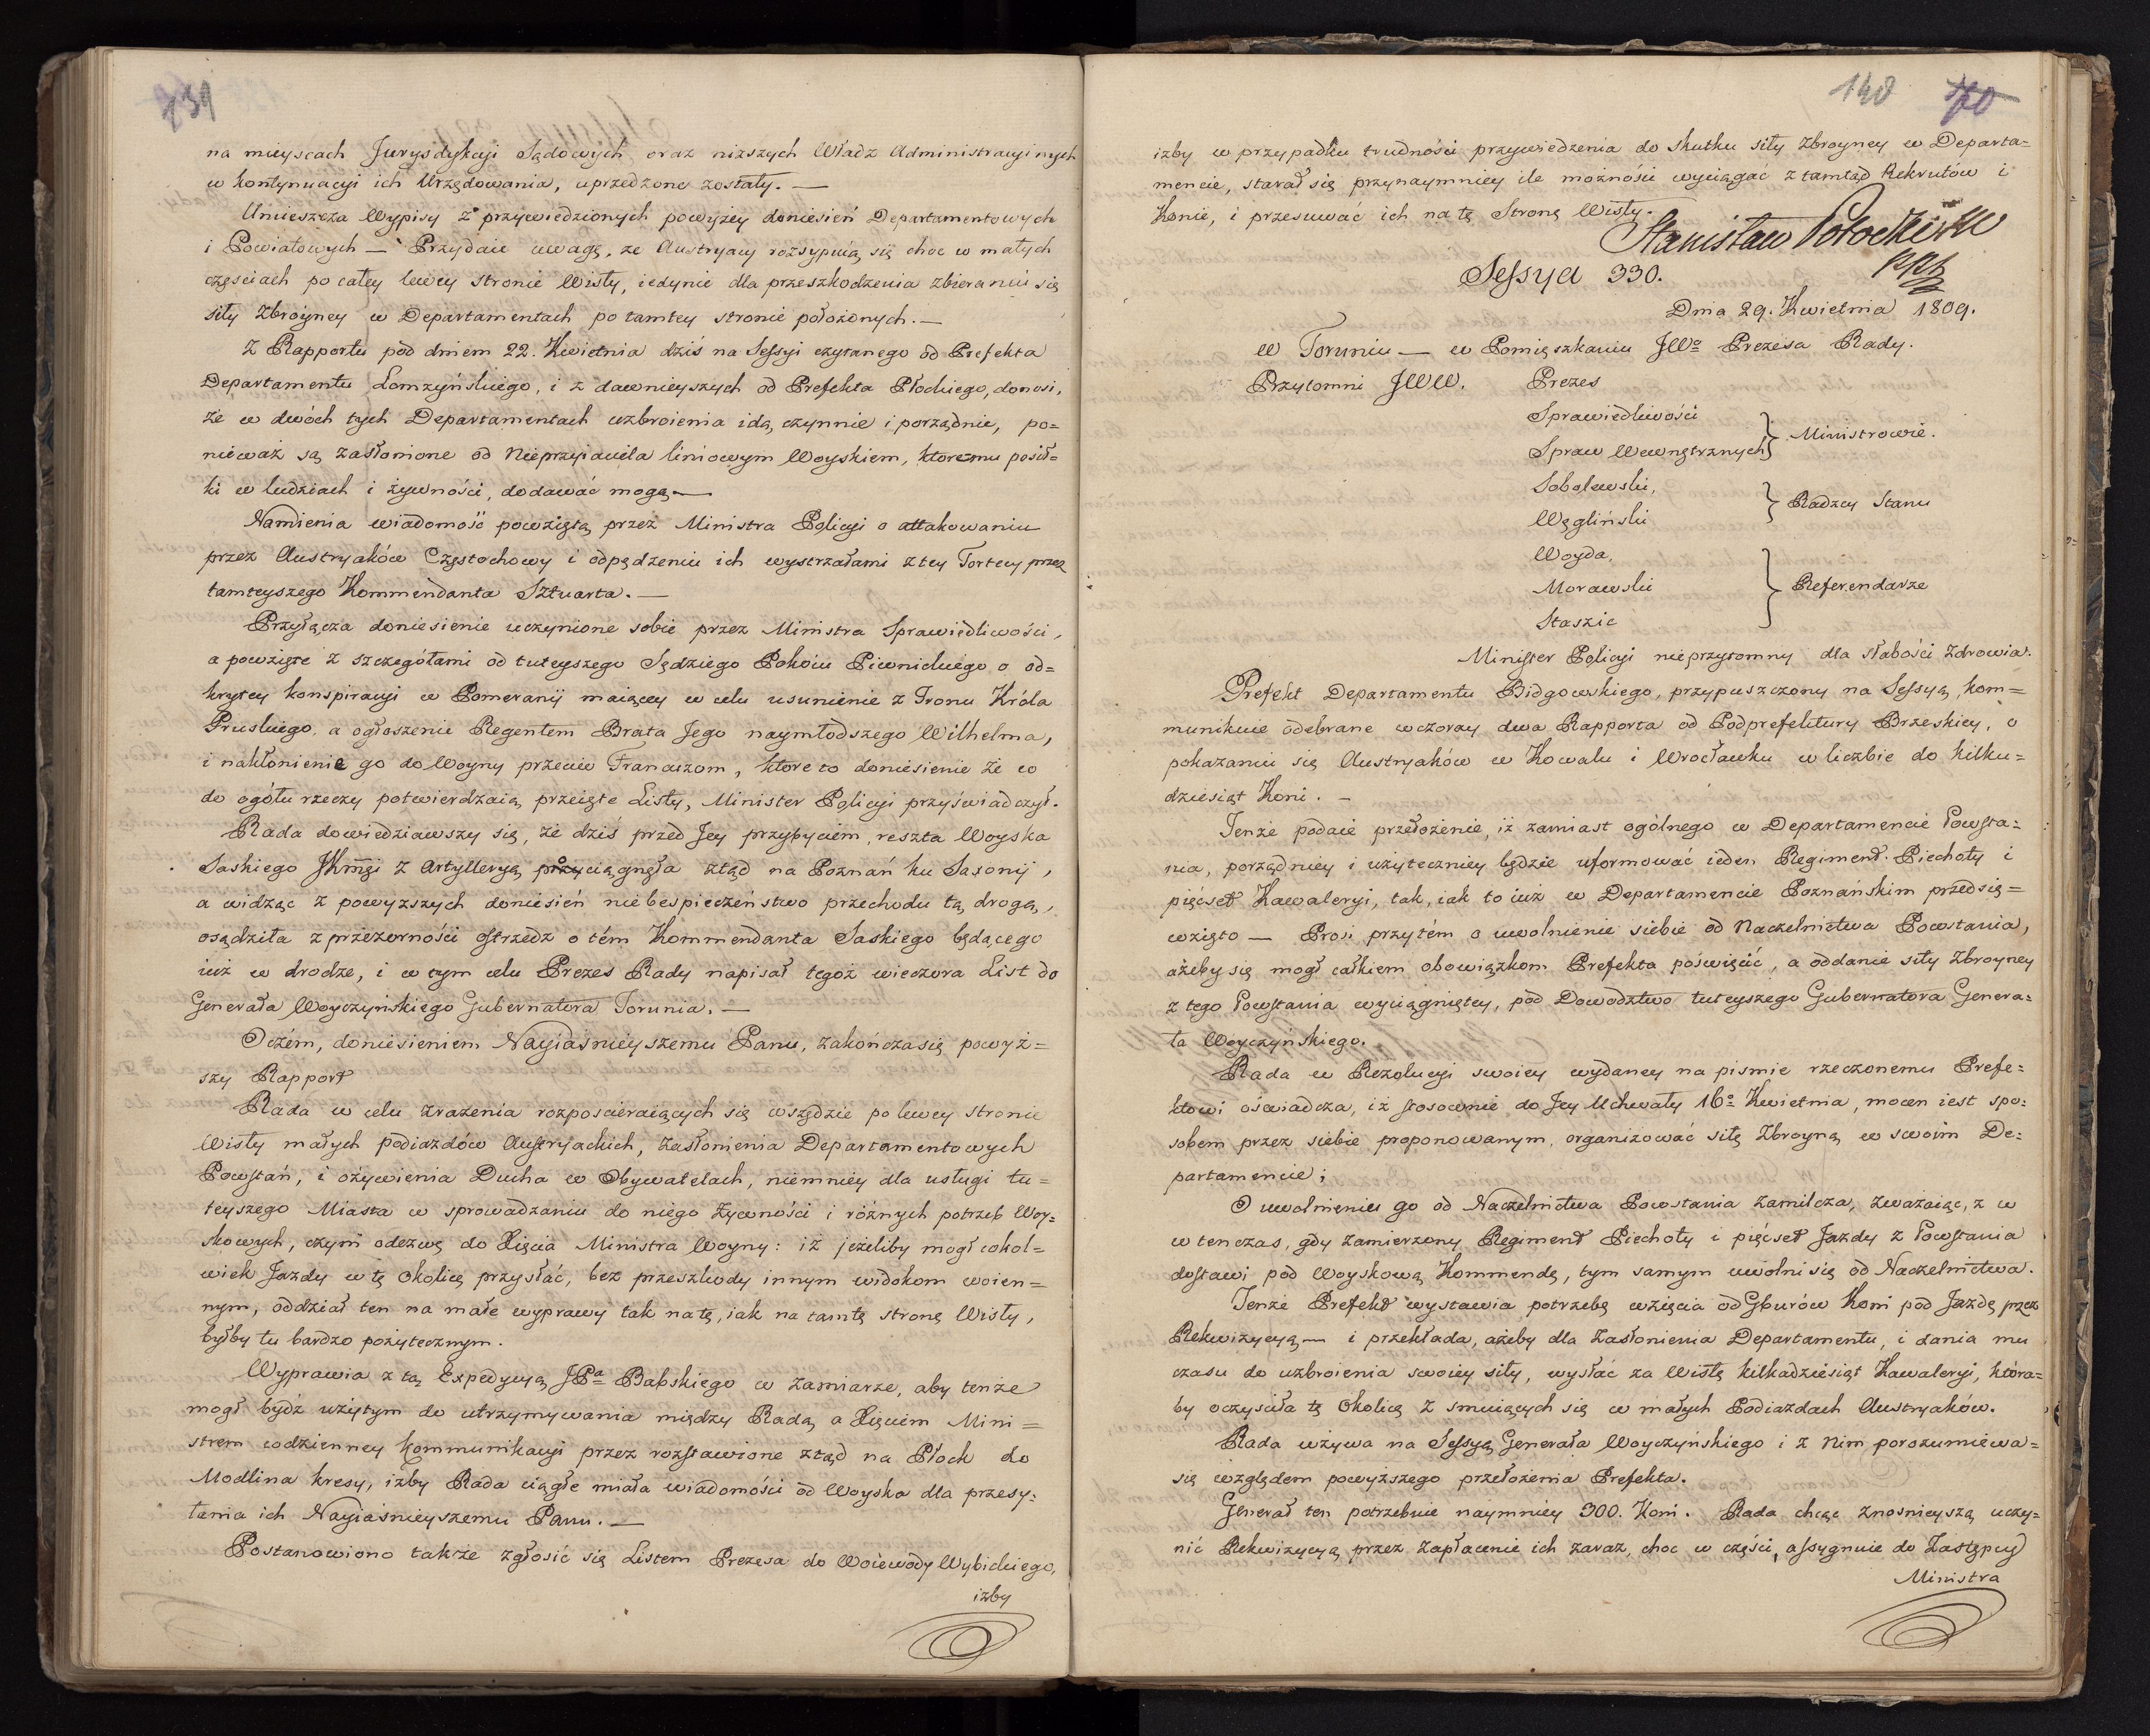 139
na mieyscach Jurysdykcyi Sądowych oraz niższych Władz Administracyinych
w kontynuacyi ich Urzędowania, uprzedzone zostały. —
Umieszcza Wypisy z przywiedzionych powyżey doniesień Departamentowych
i Powiatowych — Przydaie uwagę, że Austryacy rozsypuią się choc w małych
częściach po całey lewey stronie Wisły, iedynie dla przeszkodzenia zbieraniu się
siły Zbroyney w Departamentach po tamtey stronie położonych. —
Z Rapportu pod dniem 22. Kwietnia dziś na Sessyi czytanego od Prefekta
Departamentu Łomżyńskiego, i z dawnieyszych od Prefekta Płockiego, donosi,
że w dwóch tych Departamentach uzbroienia idą czynnie i porządnie, po=
nieważ są zasłonione od Nieprzyiaciela liniowym Woyskiem, któremu posił=
ki w ludziach i żywności, dodawać mogą —
Namienia wiadomość powziętą przez Ministra Policyi o attakowaniu
przez Austryaków Częstochowy i odpędzeniu ich wystrzałami z tey Fortecy przez
tamteyszego Kommendanta Sztuarta. —
Przyłącza doniesienie uczynione sobie przez Ministra Sprawiedliwości,
a powzięte z szczegółami od tuteyszego Sędziego Pokoiu Piwnickiego o od=
krytey konspiracyi w Pomeranij maiącey w celu usunienie z Tronu Króla
Pruskiego, a ogłoszenie Regentem Brata Jego naymłodszego Wilhelma,
i nakłonienie go do Woyny przeciw Francuzom, które to doniesienie że co
do ogółu rzeczy potwierdzaią przeięte Listy, Minister Policyi przyświadczył.
Rada dowiedziawszy się, że dziś przed Jey przybyciem, reszta Woyska
Saskiego JKmći z Artylleryą pociągnęła ztąd na Poznań ku Saxonij,
a widząc z powyższych doniesień niebespieczeństwo przechodu tą drogą,
osądziła z przezorności ostrzedz o tém Kommendanta Saskiego będącego
iuż w drodze, i w tym celu Prezes Rady napisał tegoż wieczora List do
Generała Woyczyńskiego Gubernatora Torunia. —
O czém, doniesieniem Nayiaśnieyszemu Panu, zakończa się powyż=
szy Rapport
Rada w celu zrażenia rozpościeraiących się wszędzie po lewey stronie
Wisły małych podiazdów Austryackich, zasłonienia Departamentowych
Powstań, i ożywienia Ducha w Obywatelach, niemniey dla usługi tu=
teyszego Miasta w sprowadzaniu do niego Żywności i różnych potrzeb Woy=
skowych, czyni odezwę do Xięcia Ministra Woyny: iż jeżeliby mogł cokol=
wiek Jazdy w tę Okolicę przysłać, bez przeszkody innym widokom woien=
nym, oddział ten na małe wyprawy tak na tę, iak na tamtę stronę Wisły,
byłby tu bardzo pożytecznym.
Wyprawia z tą Expedycyą JPa Babskiego w zamiarze, aby tenże
mogł bydź użytym do utrzymywania między Radą a Xięciem Mini=
strem codzienney kommunikacyi przez rozstawione ztąd na Płock do
Modlina kresy, iżby Rada ciągłe miała wiadomości od Woyska dla przesy=
łania ich Nayiaśnieyszemu Panu. —
Postanowiono także zgłosić się Listem Prezesa do Woiewody Wybickiego,
iżby
140
iżby w przypadku trudności przywiedzenia do skutku siły Zbroyney w Departa=
mencie, starał się przynaymniey ile możności wyciągać z tamtąd Rekrutów i
Konie, i przesuwać ich na tę Stronę Wisły.
Stanisław Potocki
Sessya 330.
Dnia 29. Kwietnia 1809.
W Toruniu — w Pomięszkaniu JWo Prezesa Rady.
Przytomni JWW. Prezes
Sprawiedliwości
Spraw Wewnętrznych } Ministrowie.
Sobolewski,
Węgliński } Radzcy Stanu
Woyda,
Morawski } Referendarze
Staszic
Minister Policyi nieprzytomny dla słabości Zdrowia.
Prefekt Departamentu Bidgowskiego, przypuszczony na Sessyą, kom=
munikuie odebrane wczoray dwa Rapporta od Podprefektury Brzeskiey, o
pokazaniu się Austryaków w Kowalu i Wrocławku w liczbie do kilku=
dziesiąt Koni. —
Tenże podaie przełożenie, iż zamiast ogólnego w Departamencie Powsta=
nia, porządniey i użyteczniey będzie uformować ieden Regiment Piechoty i
pięćset Kawaleryi, tak, iak to iuż w Departamencie Poznańskim przedsię=
wzięto — Prosi przytém o uwolnienie siebie od Naczelnictwa Powstania,
ażeby się mogł całkiem obowiązkom Prefekta poświęcić, a oddanie siły Zbroyney
z tego Powstania wyciągniętey, pod Dowodztwo tuteyszego Gubernatora Genera=
ła Woyczyńskiego.
Rada w Rezolucyi swoiey wydaney na piśmie rzeczonemu Prefe=
ktowi oświadcza, iż stosownie do Jey Uchwały 16o Kwietnia, mocen iest spo=
sobem przez siebie proponowanym, organizować siłę Zbroyną w swoim De=
partamencie;
O uwolnieniu go od Naczelnictwa Powstania zamilcza, zważaiąc, ż w
w tenczas, gdy zamierzony Regiment Piechoty i pięćset Jazdy z Powstania
dostawi pod Woyskową Kommendę, tym samym uwolni się od Naczelnictwa.
Tenże Prefekt wystawia potrzebę wzięcia od Gburów Koni pod Jazdę przez
Rekwizycyą — i przekłada, ażeby dla zasłonienia Departamentu, i dania mu
czasu do uzbroienia swoiey siły, wysłać za Wisłę kilkadziesiąt Kawaleryi, która=
by oczyściła tę Okolicę z snuiących się w małych Podiazdach Austryaków.
Rada wzywa na Sessyą Generała Woyczyńskiego i z Nim porozumiewa=
się względem powyższego przełożenia Prefekta.
Generał ten potrzebuie naymniey 300. Koni. Rada chcąc znośnieyszą uczy=
nić Rekwizycyą przez zapłacenie ich zaraz, choc w części, assygnuie do Zastępcy
Ministra